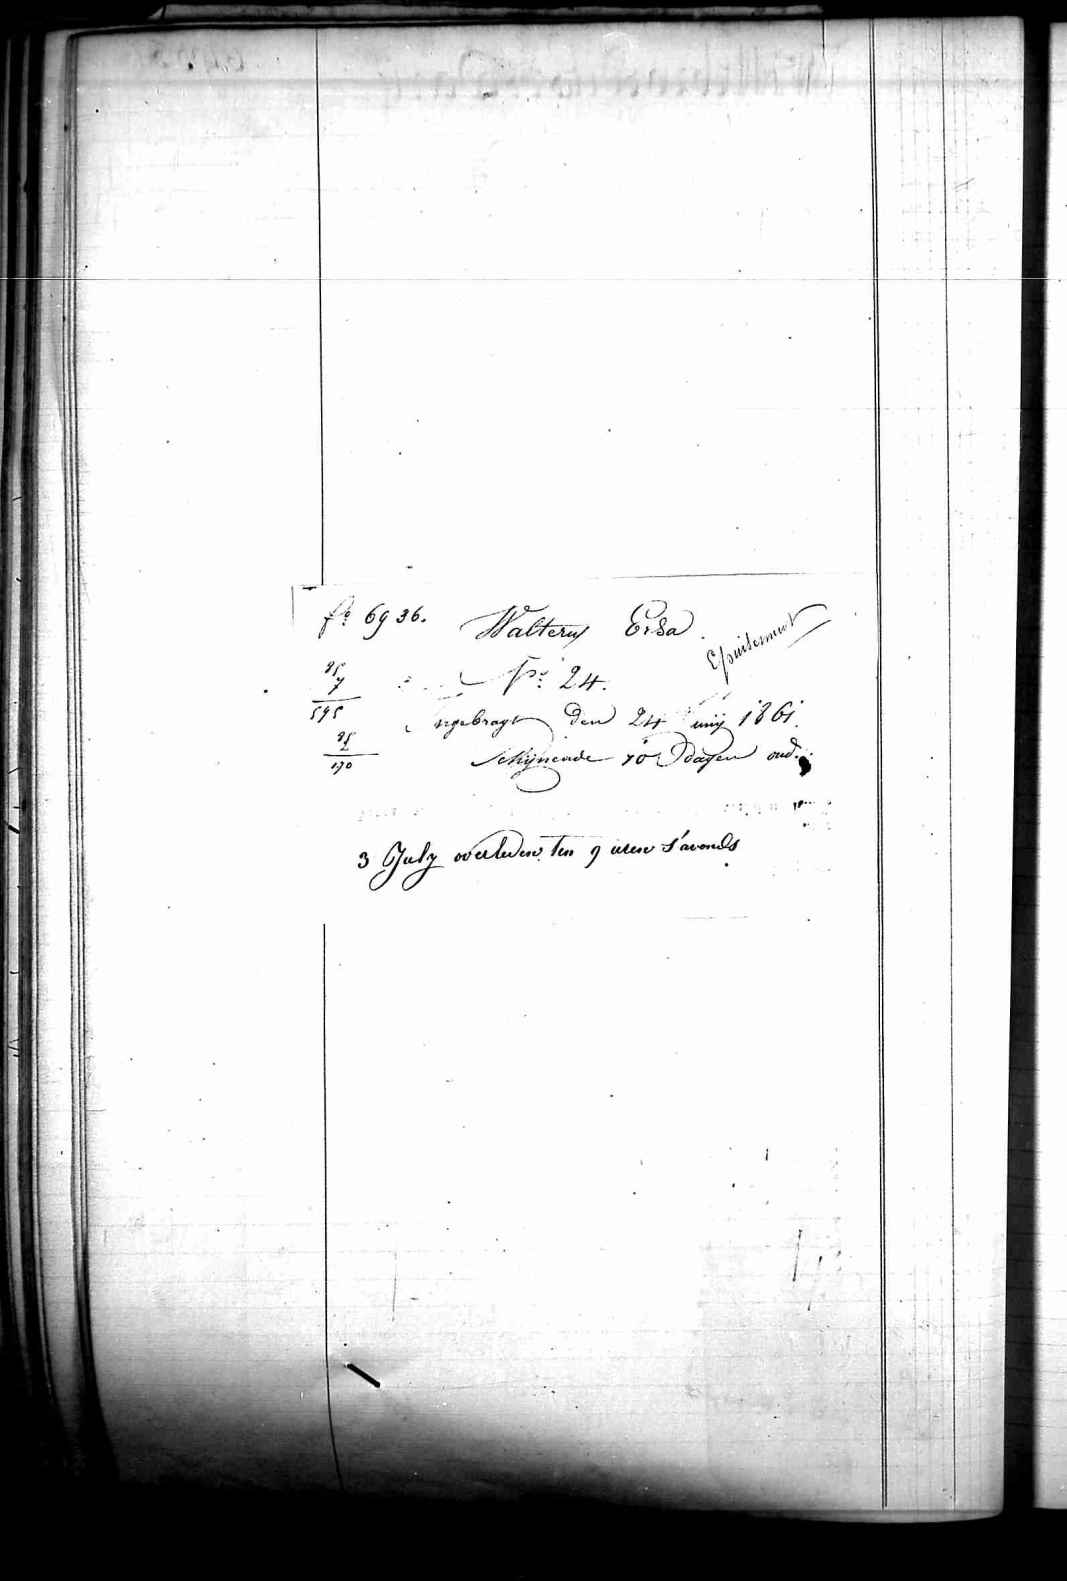 fo 6936. Walterus Ersa
Epuisement
85
7
595
No 24.
85
2
170
Ingebragt den 24 Junij 1861.
schijnende 10 Dagen oud.
3 July overleden ten 9 uren s'avonds